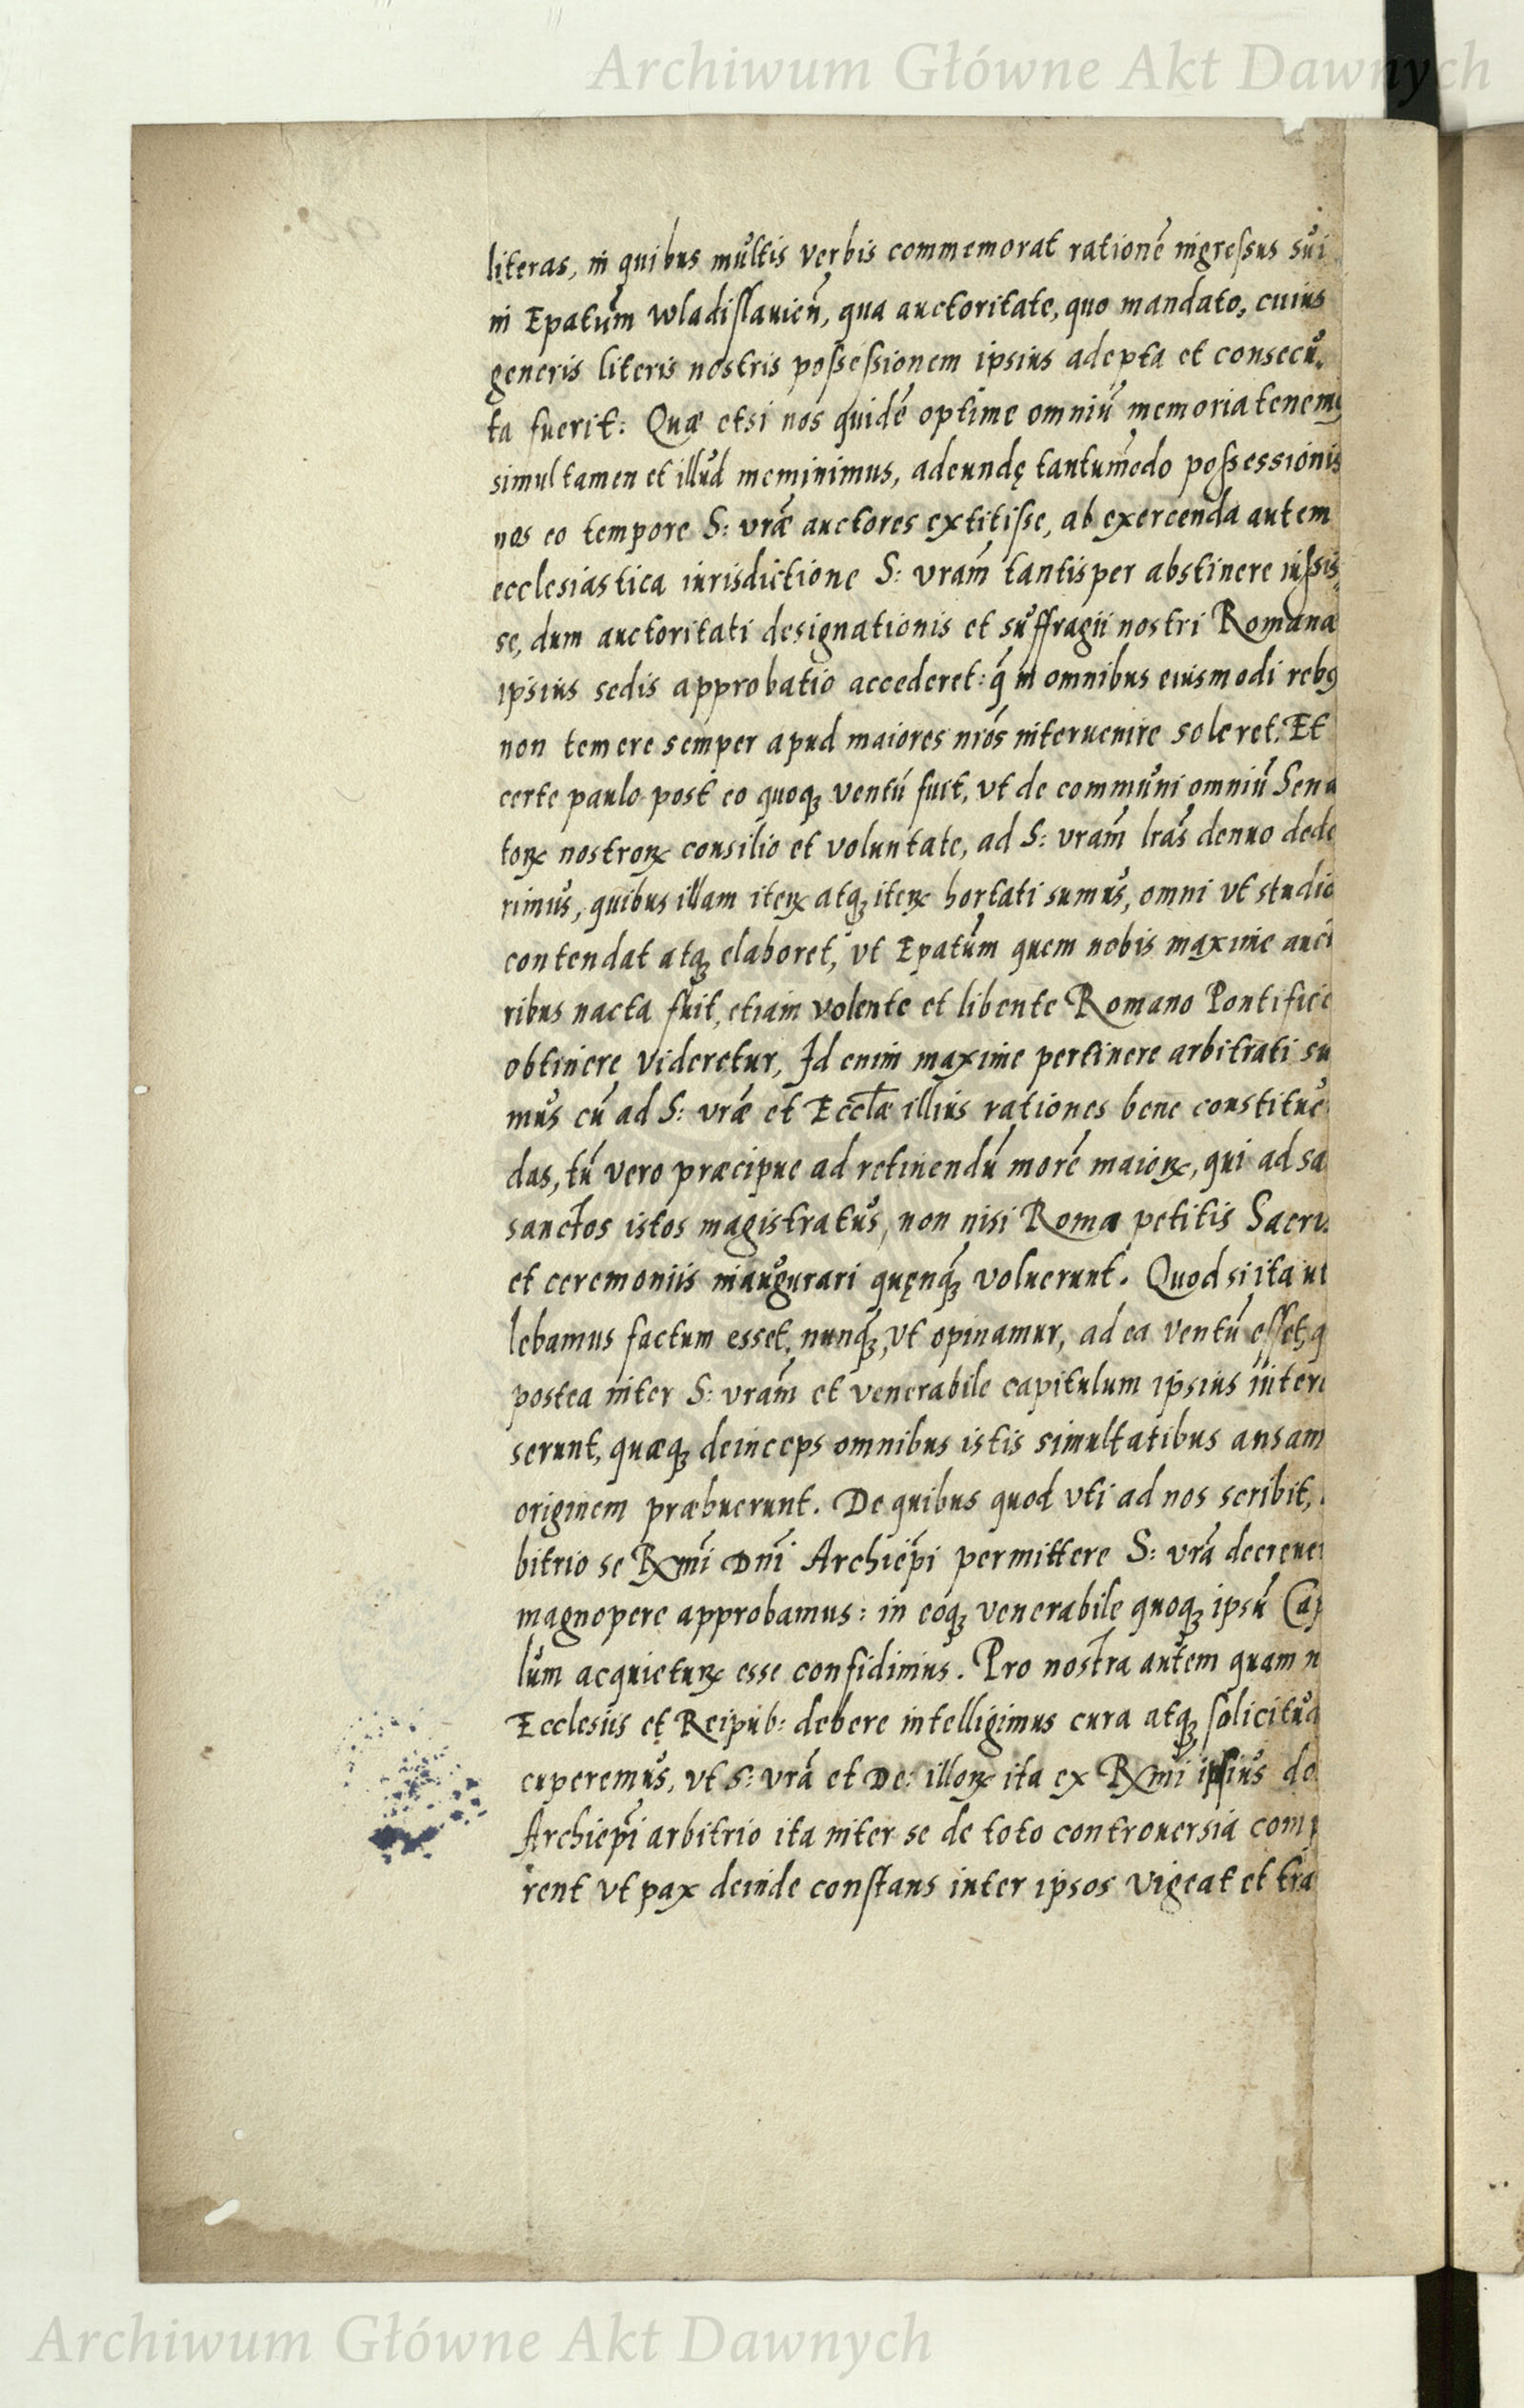 Archiwum Główne Akt Dawnych
literas, in quibus multis verbis commemorat rationē ingressus sui
in Epatum̄ Wladislauien̄, qua auctoritate, quo mandato, cuius
generis literis nostris possessionem ipsius adepta et consecu-
ta fuerit: Quæ etsi nos quidē optime omniū memoria tenemꝰ
simul tamen et illud meminimus, adeundę tantum̄odo possessionis
nos eo tempore S: vrāe auctores extitisse, ab exercenda autem
ecclesiastica iurisdictione S: vram̄ tantisper abstinere iussis-
se, dum auctoritati designationis et suffragii nostri Romanæ
ipsius sedis approbatio accederet: q̄ in omnibus eiusmodi rebꝰ
non temere semper apud maiores nrōs interuenire soleret. Et
certe paulo post eo quoqꝫ ventū fuit, vt de communi omniū Sena
toꝝ nostroꝝ consilio et voluntate, ad S: vram̄ lrās denuo dede
rimus, quibus illam iteꝝ atqꝫ iteꝝ hortati sumus, omni vt studio
contendat atqꝫ elaboret, vt Epatum̄ quem nobis maxime auct
ribus nacta fuit, etiam volente et libente Romano Pontifice
obtinere videretur, Id enim maxime pertinere arbitrati su
mus cū ad S: vrāe et Eccl̄æ illius rationes bene constituē
das, tū vero præcipue ad retinendū morē maioꝝ, qui ad sa
sanctos istos magistratus, non nisi Roma petitis Sacris
et ceremoniis inaugurari quęnq̄ꝫ voluerunt. Quod si ita ut
lebamus factum esset, nunq̄ꝫ, vt opinamur, ad ea ventū esset, q
postea inter S: vram̄ et venerabile capitulum ipsius interc
serunt, quæqꝫ deinceps omnibus istis simultatibus ansam
originem præbuerunt. De quibus quod vti ad nos scribit,
bitrio se Rx̄mi Dn̄i Archiep̄i permittere S: vrā decreuer
magnopere approbamus: in eoqꝫ venerabile quoqꝫ ipsū Cap
lum acquietuꝝ esse confidimus. Pro nostra autem quam n
Ecclesiis et Reipub: debere intelligimus cura atqꝫ solicitud
cuperemus, vt S: vrā et De: illoꝝ ita ex Rx̄mi ipsius do
Archiep̄i arbitrio ita inter se de toto controuersia comp
rent vt pax deinde constans inter ipsos vigeat et tra
Archiwum Główne Akt Dawnych